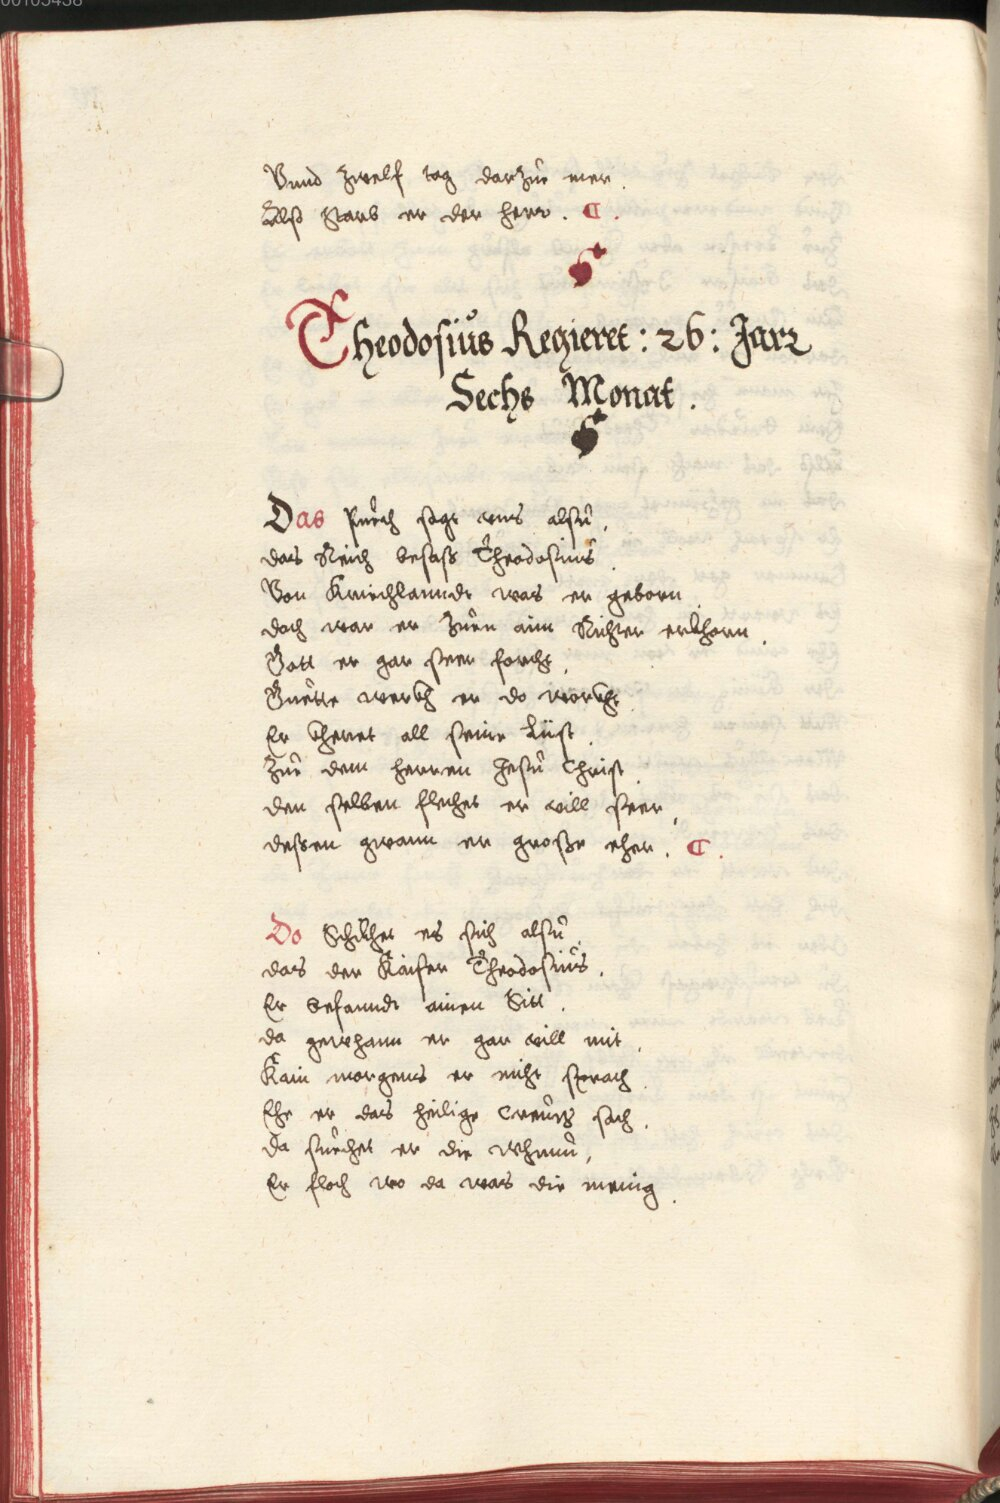 00105438
Vnnd zwelf tag darzue mer.
Allso Starb er der herr. C.
Theodosiůs Regieret: 26: Jarz
Sechs Monat.
Das Půech sagt vns alsů,
das Reich besass Theodosiůs.
Von Kriechlanndt was er geborn
doch war er zůen aim Richter erkhorn.
Gott er gar seer forcht,
Gůette werkh er do worcht.
Er kheret all seine Lüst.
Zůe dem herren Jesů Christ.
den selben flechet er vill seer,
dessen gwann er grosse eher. C.
Do Schůhet es sich alsů,
das der Kaiser Theodosiůs,
Er befanndt ainen Sitt.
da gewhann er gar vill mit,
Kain morgens er nicht sprach.
Ehe er das heilige Creůtz sach.
Da sůechet er die
Er floch wo da was die menig.